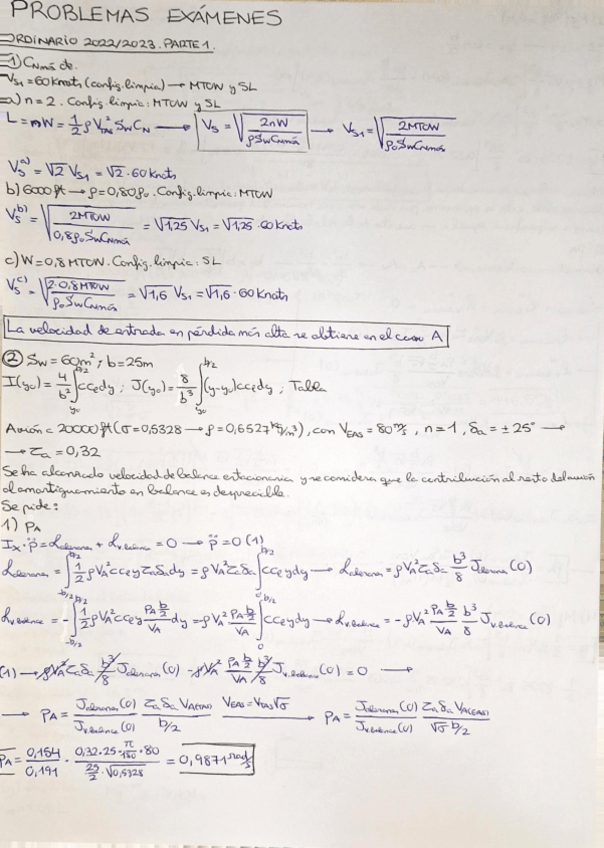 PROBLEMAS EXÁMENES
ORDINARIO 2022/2023. PARTE 1.
1) C_Nmáx de.
V_S1 = 60 Knots (config. limpia) → MTOW y SL
a) n = 2. Config. limpia: MTOW y SL
L = nW = 1/2 ρ V_TAS² S_W C_N → V_S = √(2nW / ρ S_W C_Nmáx) → V_S1 = √(2MTOW / ρ₀ S_W C_Nmáx)
V_S^a) = √2 V_S1 = √2 · 60 Knots
b) 6000 ft → ρ = 0,80ρ₀. Config. limpia: MTOW
V_S^b) = √(2MTOW / 0,8ρ₀ S_W C_Nmáx) = √1,25 V_S1 = √1,25 · 60 Knots
c) W = 0,8 MTOW. Config. limpia: SL
V_S^c) = √(2·0,8 MTOW / ρ₀ S_W C_Nmáx) = √1,6 V_S1 = √1,6 · 60 Knots
La velocidad de entrada en pérdida más alta se obtiene en el caso A
2 S_W = 60 m² ; b = 25 m
I(y₀) = 4/b² ∫_{y₀}^{b/2} c c_ℓ dy ; J(y₀) = 8/b³ ∫_{y₀}^{b/2} (y-y₀) c c_ℓ dy ; Tabla
Avión a 20000 ft (σ = 0,5328 → ρ = 0,6527 kg/m³), con V_EAS = 80 m/s, n = 1, δ_a = ± 25° →
→ τ_a = 0,32
Se ha alcanzado velocidad de balance estacionaria y se considera que la contribución al resto del avión
al amortiguamiento en balance es despreciable.
Se pide:
1) P_A
I_x · p̈ = L_alerones + L_v.balance = 0 → p̈ = 0 (1)
L_alerones = ∫_{-b/2}^{b/2} 1/2 ρ V_A² c c_ℓ y τ_a δ_a dy = ρ V_A² τ_a δ_a ∫_0^{b/2} c c_ℓ y dy → L_alerones = ρ V_A² τ_a δ_a b³/8 J_alerones(0)
L_v.balance = -∫_{-b/2}^{b/2} 1/2 ρ V_A² c c_ℓ y (P_A b/2)/V_A dy = ρ V_A² (P_A b/2)/V_A ∫_0^{b/2} c c_ℓ y dy → L_v.balance = -ρ V_A² (P_A b/2)/V_A b³/8 J_v.balance(0)
(1) → ρ V_A² τ_a δ_a b³/8 J_alerones(0) - ρ V_A² (P_A b/2)/V_A b³/8 J_v.balance(0) = 0 →
→ P_A = J_alerones(0)/J_v.balance(0) · τ_a δ_a V_A(TAS)/(b/2) V_EAS = V_TAS √σ → P_A = J_alerones(0)/J_v.balance(0) · τ_a δ_a V_A(EAS)/(√σ b/2)
P_A = 0,154/0,191 · (0,32 · 25 · π/180 · 80)/(25/2 · √0,5328) = 0,9871 rad/s